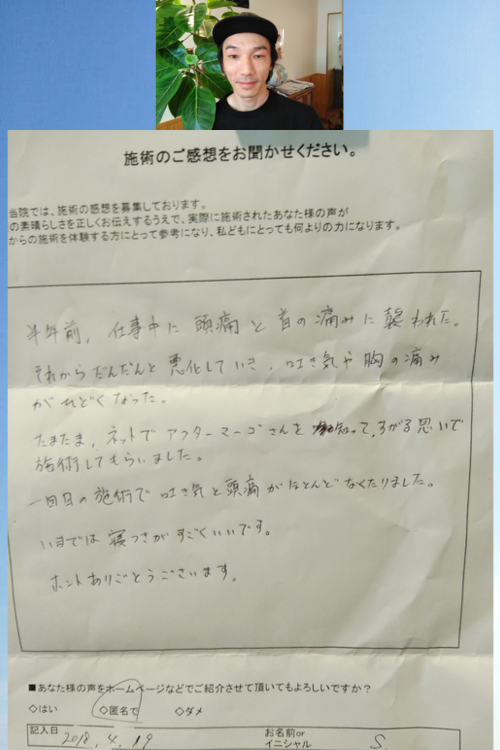 施術のご感想をお聞かせください。
当院では、施術の感想を募集しております。
の素晴らしさを正しくお伝えするうえで、実際に施術されたあなた様の声が
からの施術を体験する方にとって参考になり、私どもにとっても何よりの力になります。
半年前、仕事中に頭痛と首の痛みに襲われた。
それからだんだんと悪化していき、吐き気や胸の痛み
がひどくなった。
たまたま、ネットでアフターマーゴさんを知って、すがる思いで
施術してもらいました。
一回目の施術で吐き気と頭痛がほとんどなくたりました。
いまでは寝つきがすごくいいです。
ホントありごとうございます。
■あなた様の声をホームページなどでご紹介させて頂いてもよろしいですか？
◇はい ◇匿名で ◇ダメ
記入日 2018.4.19 お名前or
イニシャル S.